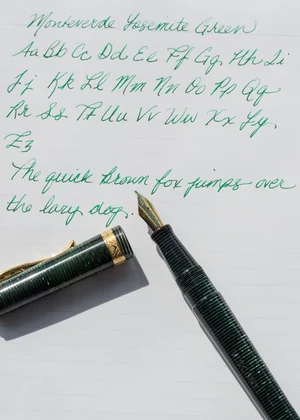 Monteverde Yosemite Green
Aa Bb Cc Dd Ee Ff Gg, Hh Ii
Jj Kk Ll Mm Nn Oo Pp Qq
Rr Ss Tt Uu Vv Ww Xx Yy,
Zz
The quick brown fox jumps over
the lazy dog.